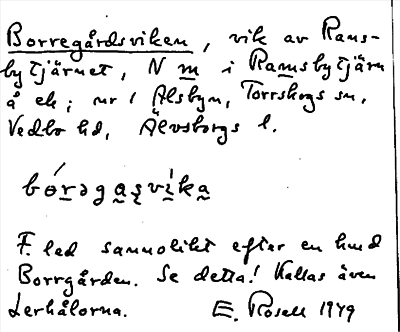 Borregårdsviken, vik av Rams-
bytjärnet, N m i Ramsbytjärn
å ek; nr 1 Alsbyn, Torrskogs sn,
Vedbo hd, Älvsborgs l.
bórəgasvìka
F. led sannolikt efter en hmd
Borrgården. Se detta! Kallas även
Lerhålorna. E. Rosell 1949